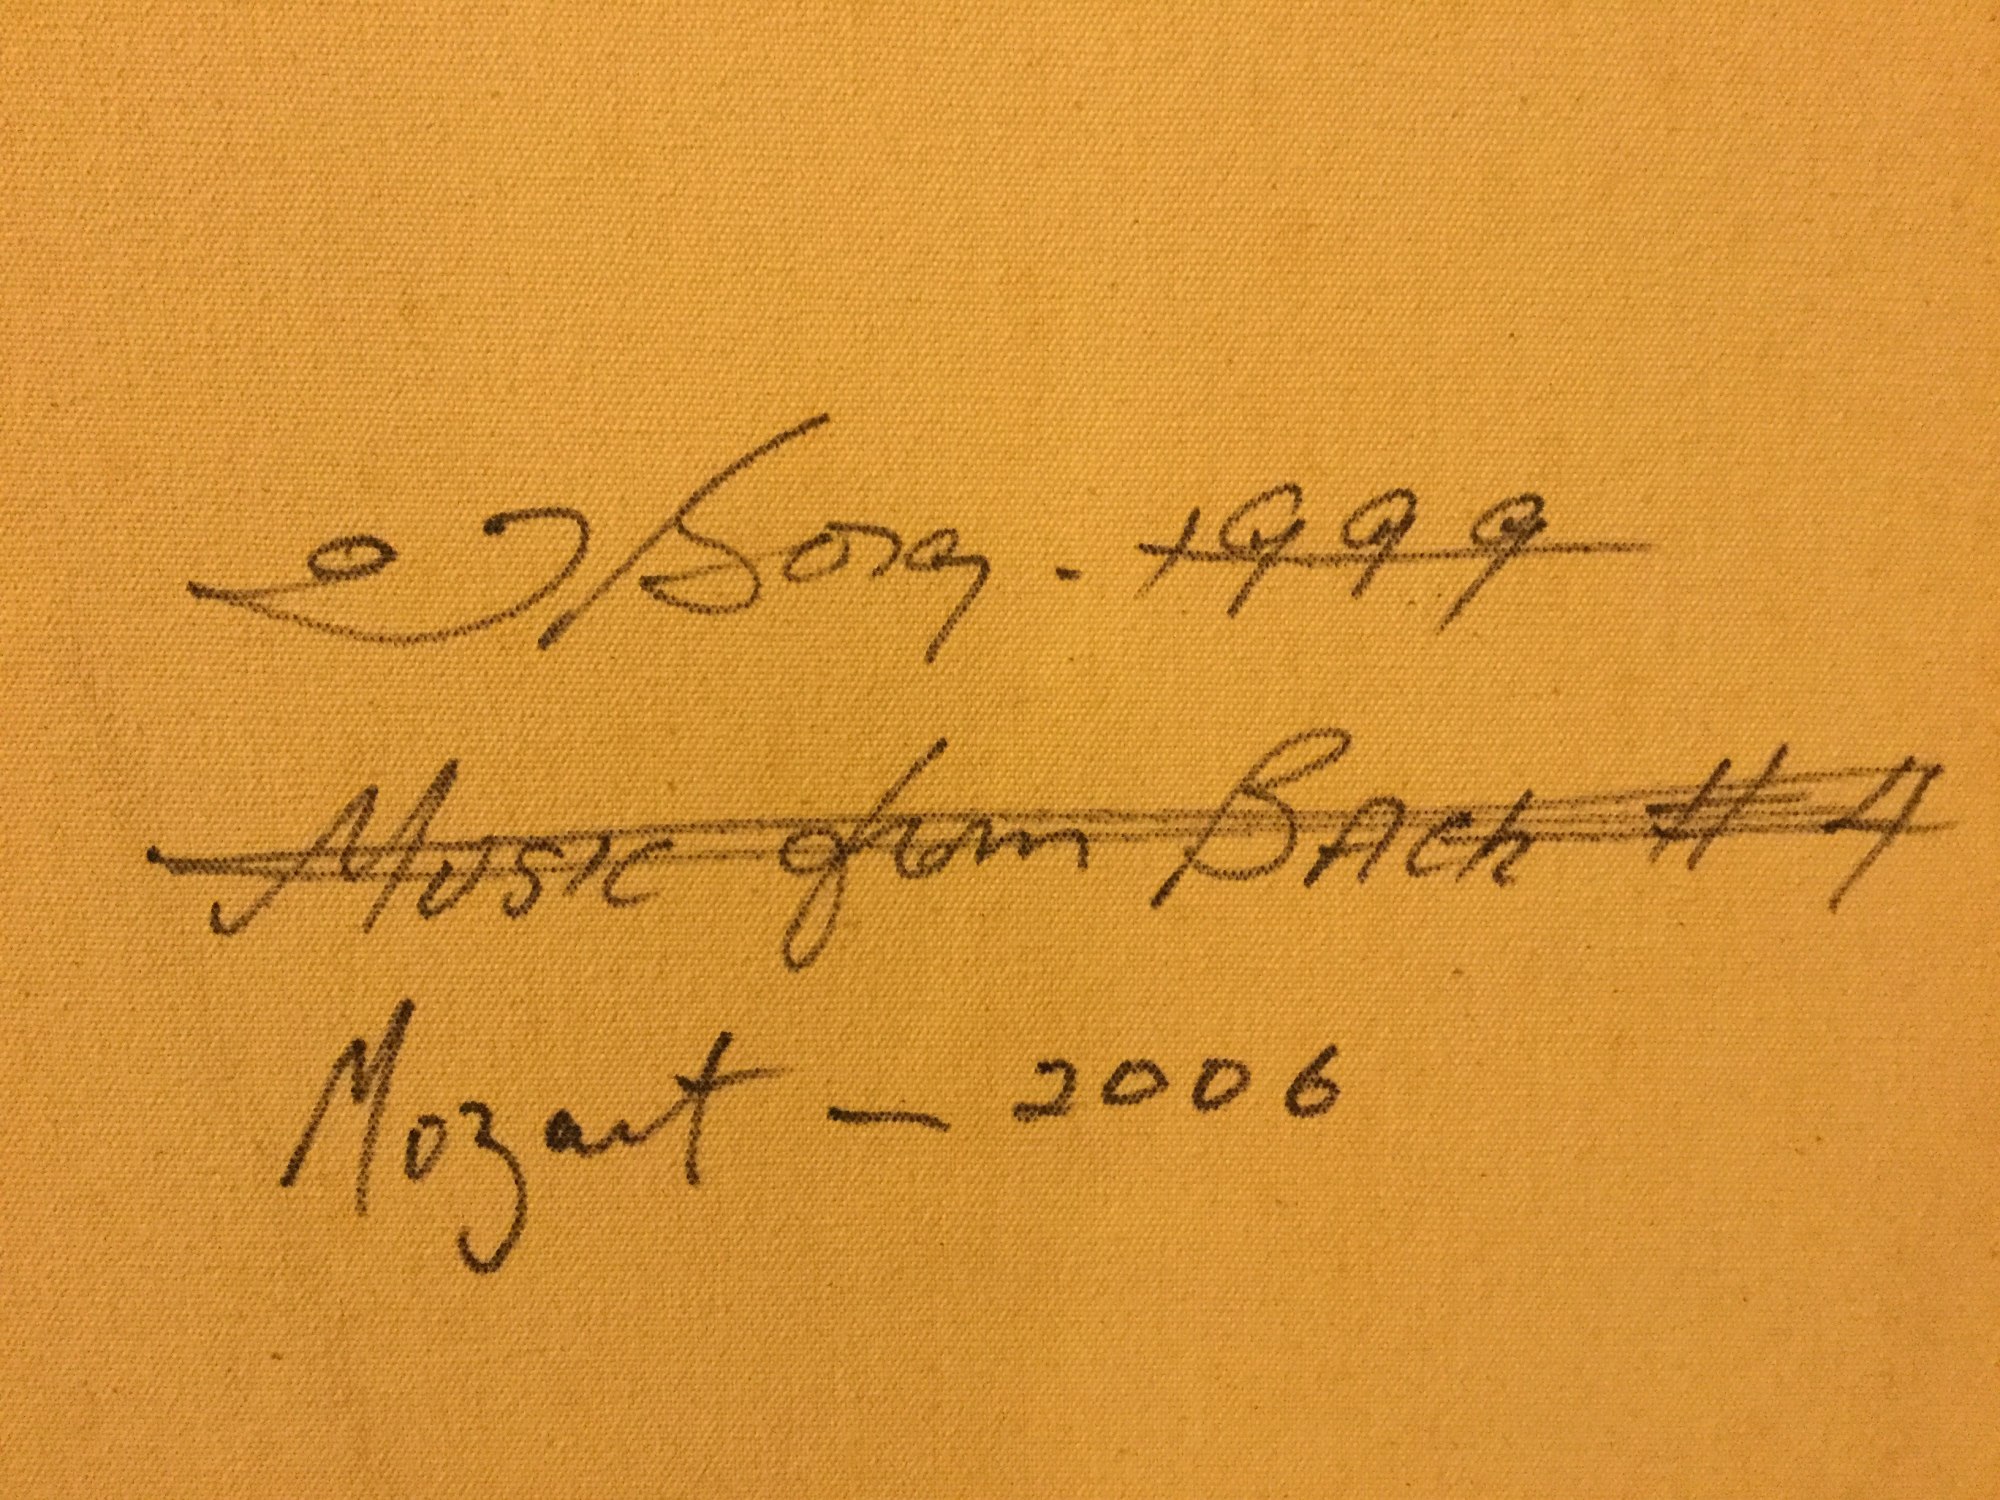 - 1999
Music from Bach # 4
Mozart — 2006